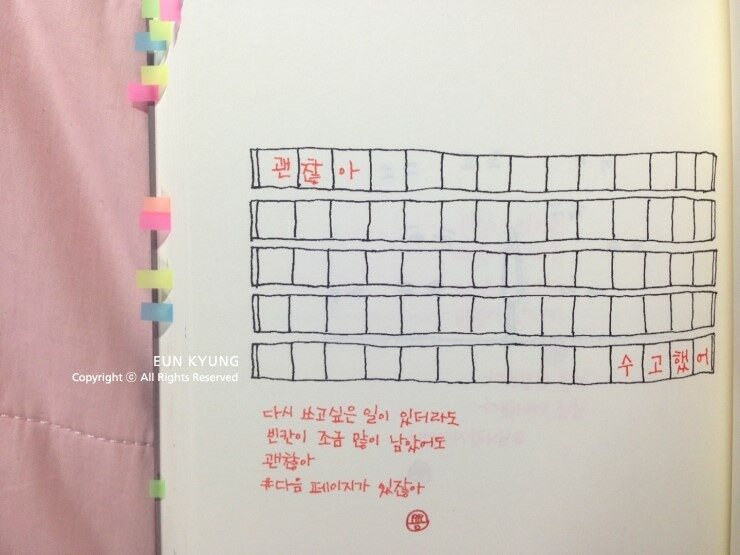 괜찮아
수고했어
EUN KYUNG
Copyright ⓒ All Rights Reserved
다시 쓰고싶은 일이 있더라도
빈칸이 조금 많이 남았어도
괜찮아
#다음 페이지가 있잖아